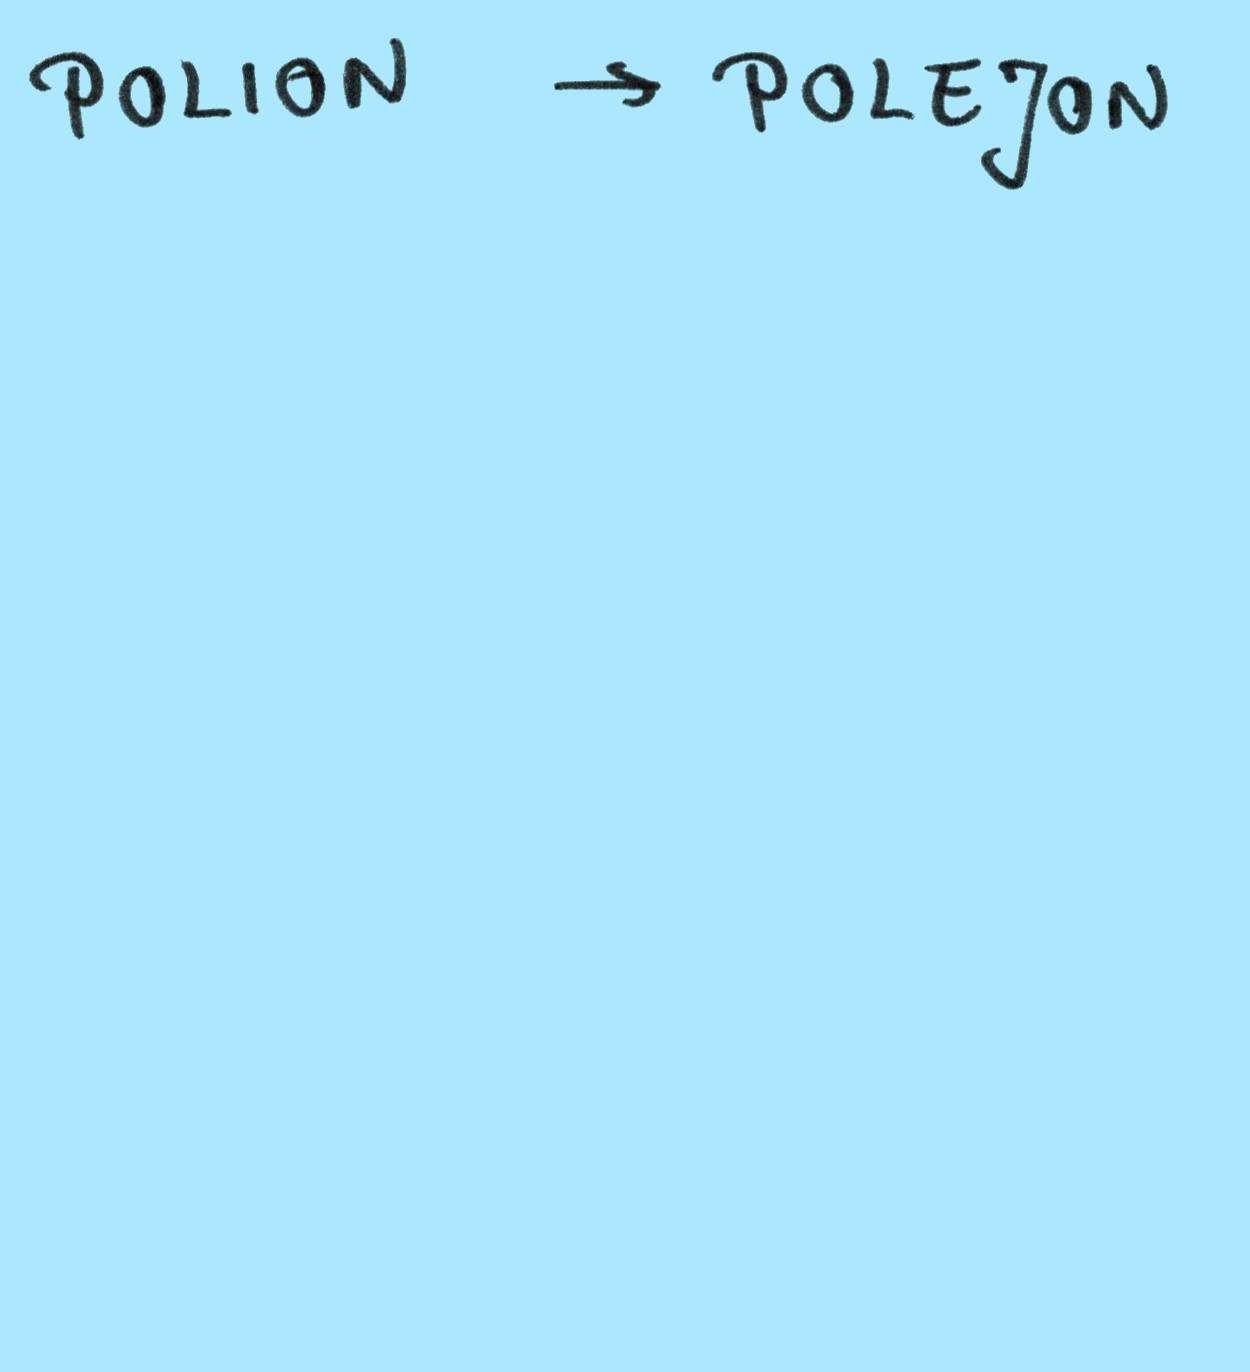 POLION → POLEJON